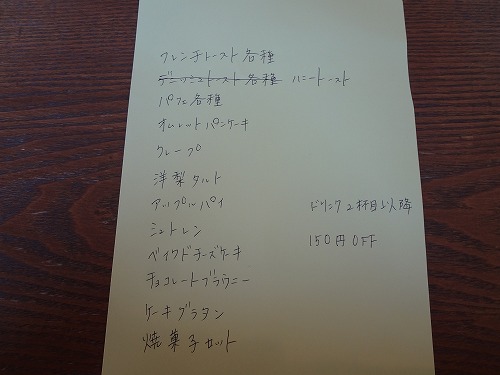 フレンチトースト各種
デニッシュトースト各種 ハニートースト
パフェ各種
オムレットパンケーキ
クレープ
洋梨タルト
アップルパイ
シュトレン
ベイクドチーズケーキ
チョコレートブラウニー
ケーキグラタン
焼菓子セット
ドリンク2杯目以降
150円OFF